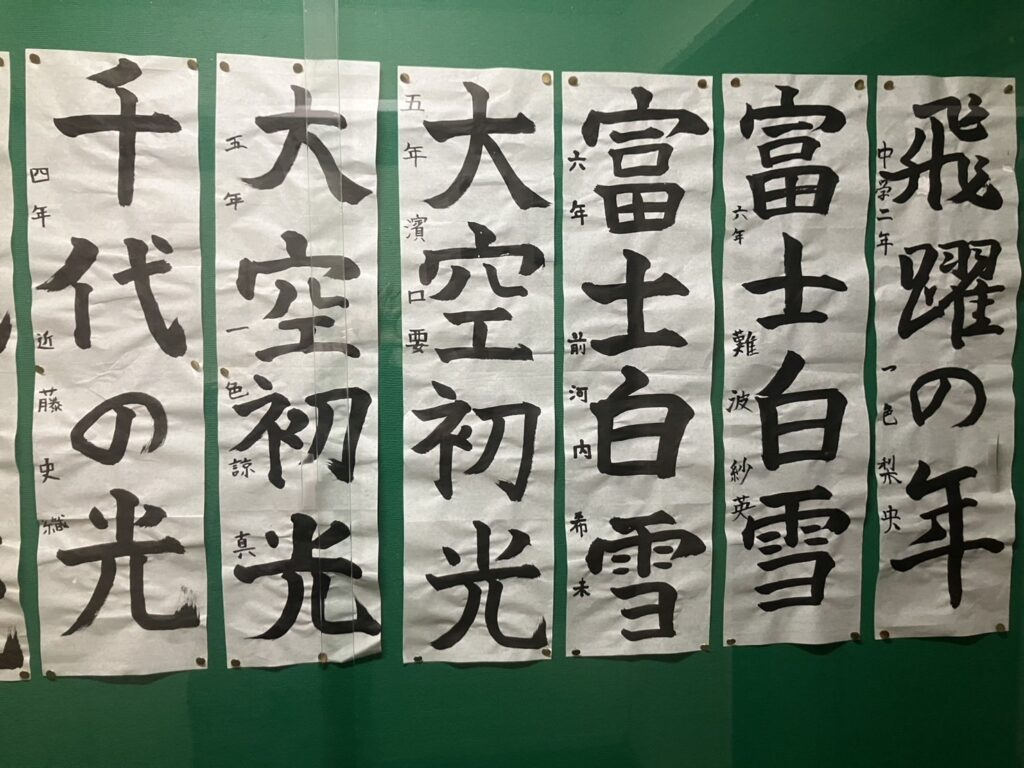 飛躍の年
中学二年 一色梨央
富士白雪
六年 難波紗英
富士白雪
六年 前河内希未
大空初光
五年 濱口要
大空初光
五年 一色諒真
千代の光
四年 近藤史織